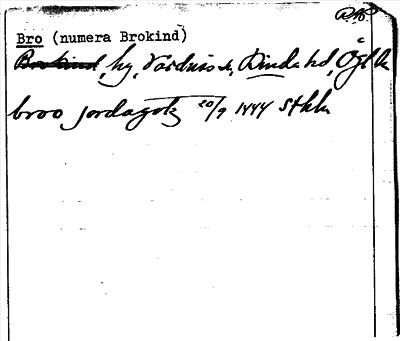 Bro (numera Brokind)
Brokind, by, Vårdnäs sn, Kinda hd, Ögl
broo jordagotz 20/9 1444 Sthlm